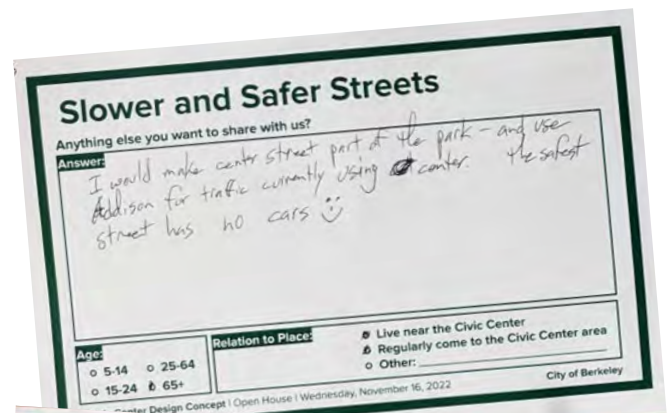 Slower and Safer Streets
Anything else you want to share with us?
Answer:
I would make center street part of the park – and use
Addison for traffic currently using center. the safest
street has no cars :)
Age:
5-14
25-64
15-24
65+
Relation to Place:
Live near the Civic Center
Regularly come to the Civic Center area
Other:
Center Design Concept | Open House | Wednesday, November 16, 2022
City of Berkeley